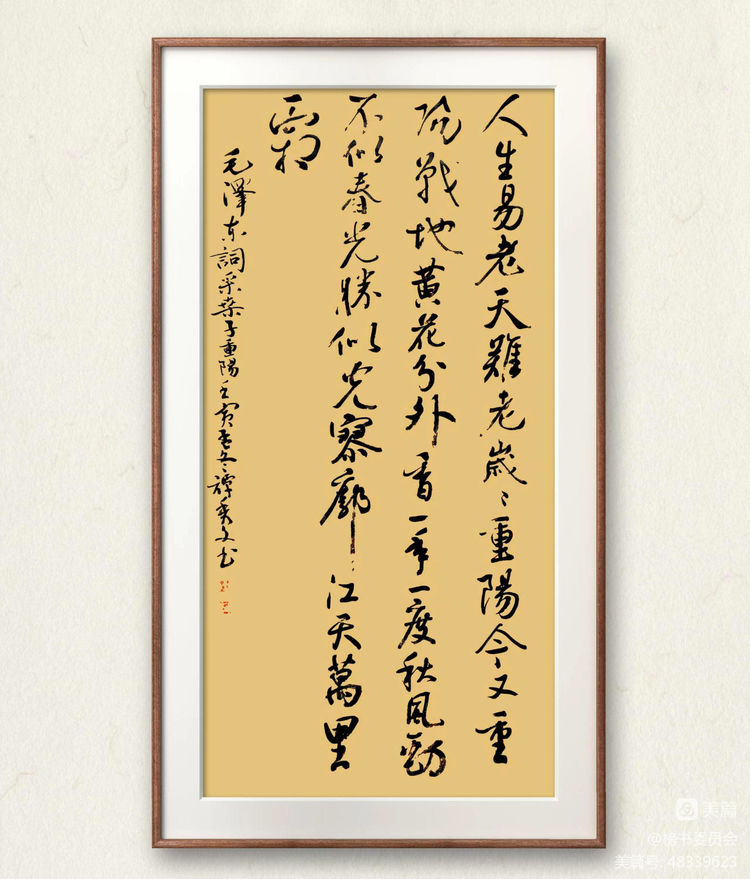 人生易老天難老歲々重陽今又重
陽戰地黃花分外香一年一度秋風勁
不似春光勝似
光寥廓江天萬里
霜
毛澤東詞采桑子重陽壬寅
冬譚秀文书
美篇
@榜书委员会
美篇号: 48339623